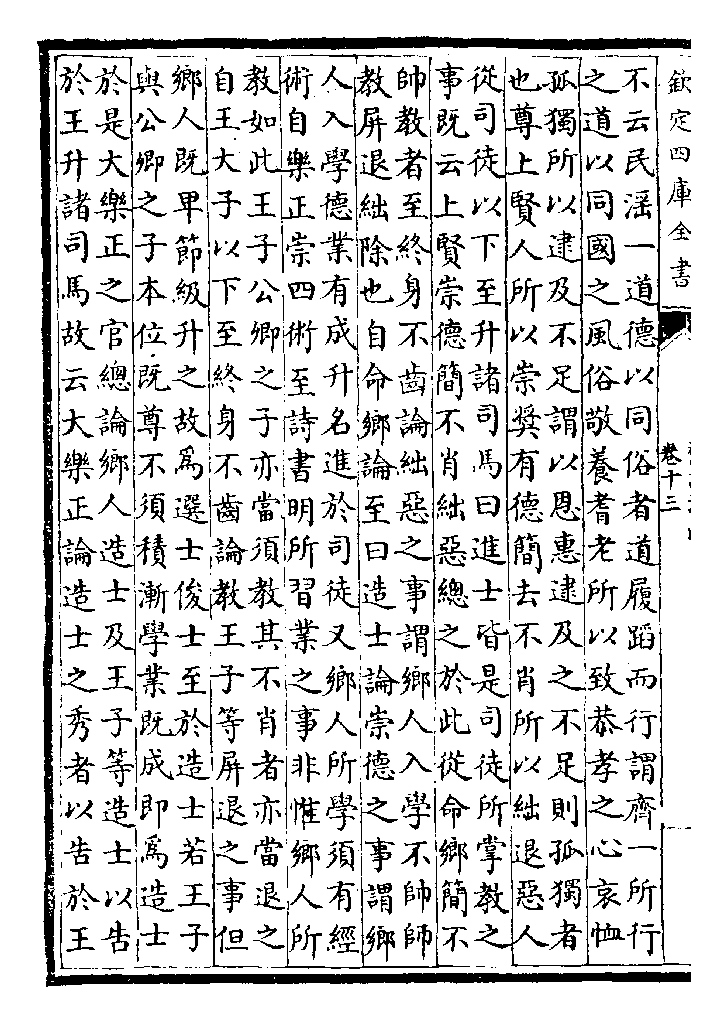 欽定四庫全書
卷十三
不云民滛一道德以同俗者道履蹈而行謂齊一所行
之道以同國之風俗敬養耆老所以致恭孝之心哀恤
孤獨所以逮及不足謂以恩惠逮及之不足則孤獨者
也尊上賢人所以崇奬有德簡去不肖所以絀退惡人
從司徒以下至升諸司馬曰進士皆是司徒所掌教之
事既云上賢崇德簡不肖絀惡總之於此從命鄉簡不
帥教者至終身不齒論絀惡之事謂鄉人入學不帥師
教屏退絀除也自命鄉論至曰造士論崇德之事謂鄉
人入學德業有成升名進於司徒又鄉人所學須有經
術自樂正崇四術至詩書明所習業之事非惟鄉人所
教如此王子公卿之子亦當須教其不肖者亦當退之
自王大子以下至終身不齒論教王子等屏退之事但
鄉人既卑節級升之故爲選士俊士至於造士若王子
與公卿之子本位既尊不須積漸學業既成即爲造士
於是大樂正之官總論鄉人造士及王子等造士以告
於王升諸司馬故云大樂正論造士之秀者以告於王